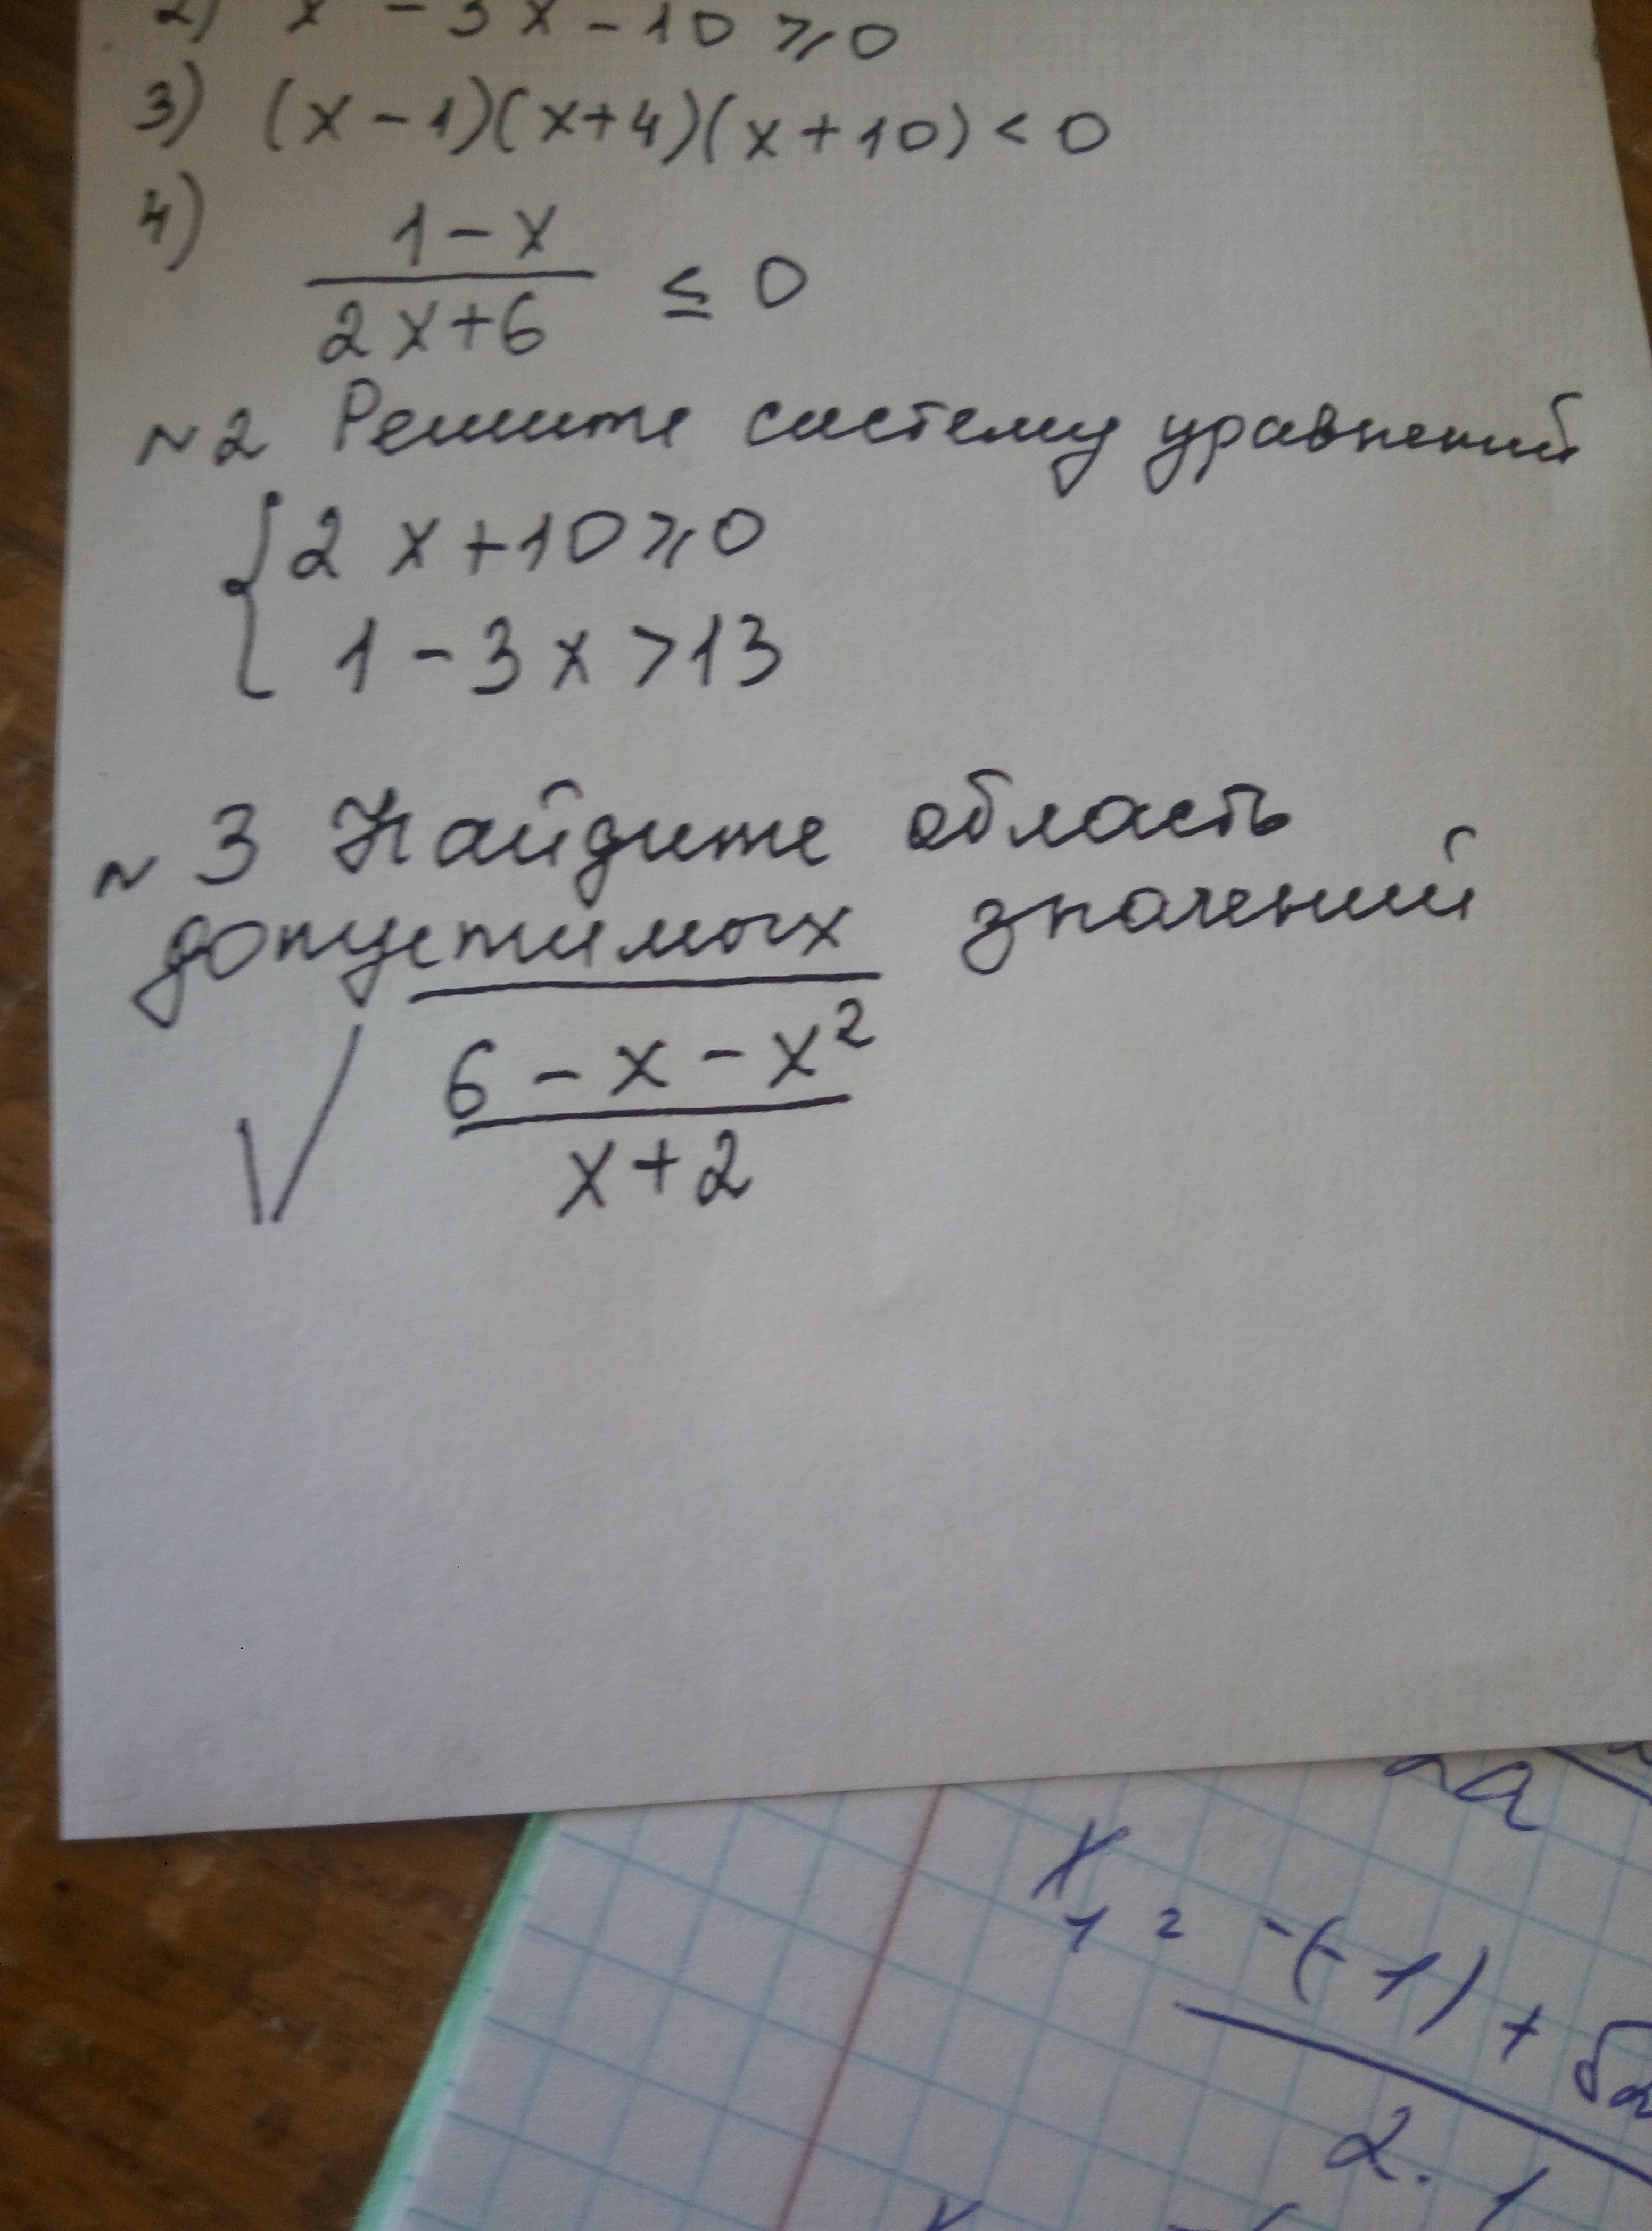 2) x - 3x - 10 ⩾ 0
3) (x - 1)(x + 4)(x + 10) < 0
4)
1 - x
2x + 6
≤ 0
№2 Решите систему уравнений
{ 2x + 10 ⩾ 0
1 - 3x > 13
№3 Найдите область
допустимых значений
√
6 - x - x²
x + 2
2a
x₁ = -(-1) + √
2 · 1